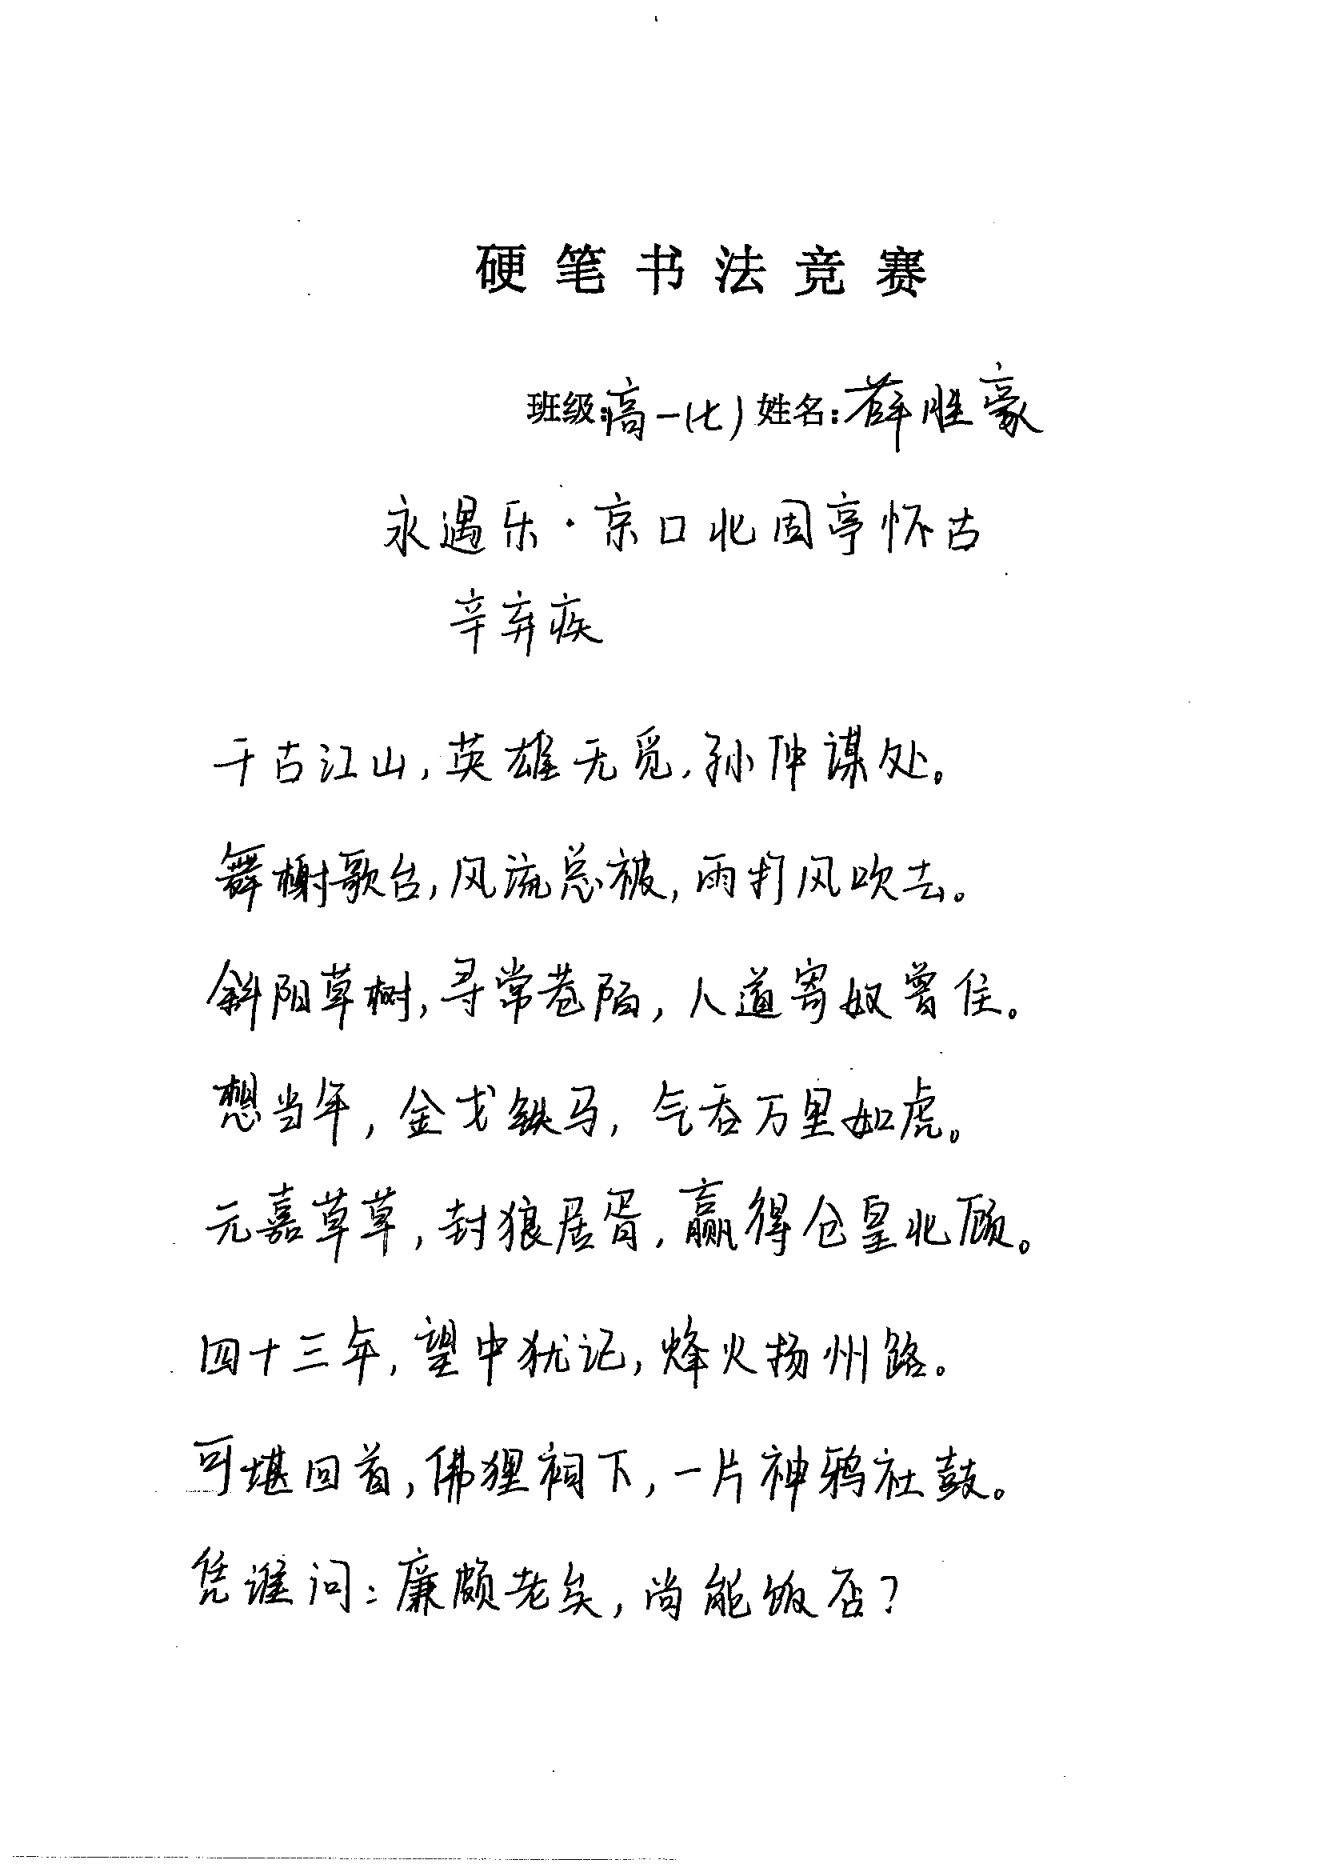 硬笔书法竞赛
班级:高一(七) 姓名:薛胜豪
永遇乐·京口北固亭怀古
辛弃疾
千古江山,英雄无觅,孙仲谋处。
舞榭歌台,风流总被,雨打风吹去。
斜阳草树,寻常巷陌,人道寄奴曾住。
想当年,金戈铁马,气吞万里如虎。
元嘉草草,封狼居胥,赢得仓皇北顾。
四十三年,望中犹记,烽火扬州路。
可堪回首,佛狸祠下,一片神鸦社鼓。
凭谁问:廉颇老矣,尚能饭否?